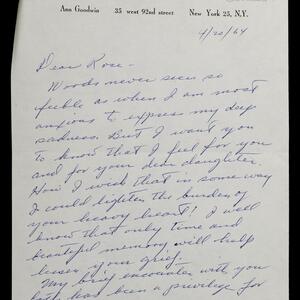 Ann Goodwin 35 west 92nd street New York 25, N.Y.
4/20/64
Dear Rose -
Words never seem so
feeble as when I am most
anxious to express my deep
sadness. But I want you
to know that I feel for you
and for your dear daughter.
How I wish that in some way
I could lighten the burden of
your heavy heart! I well
know that only time and
beautiful memory will help
lessen your grief.
My brief encounter with you
both has been a privilege for